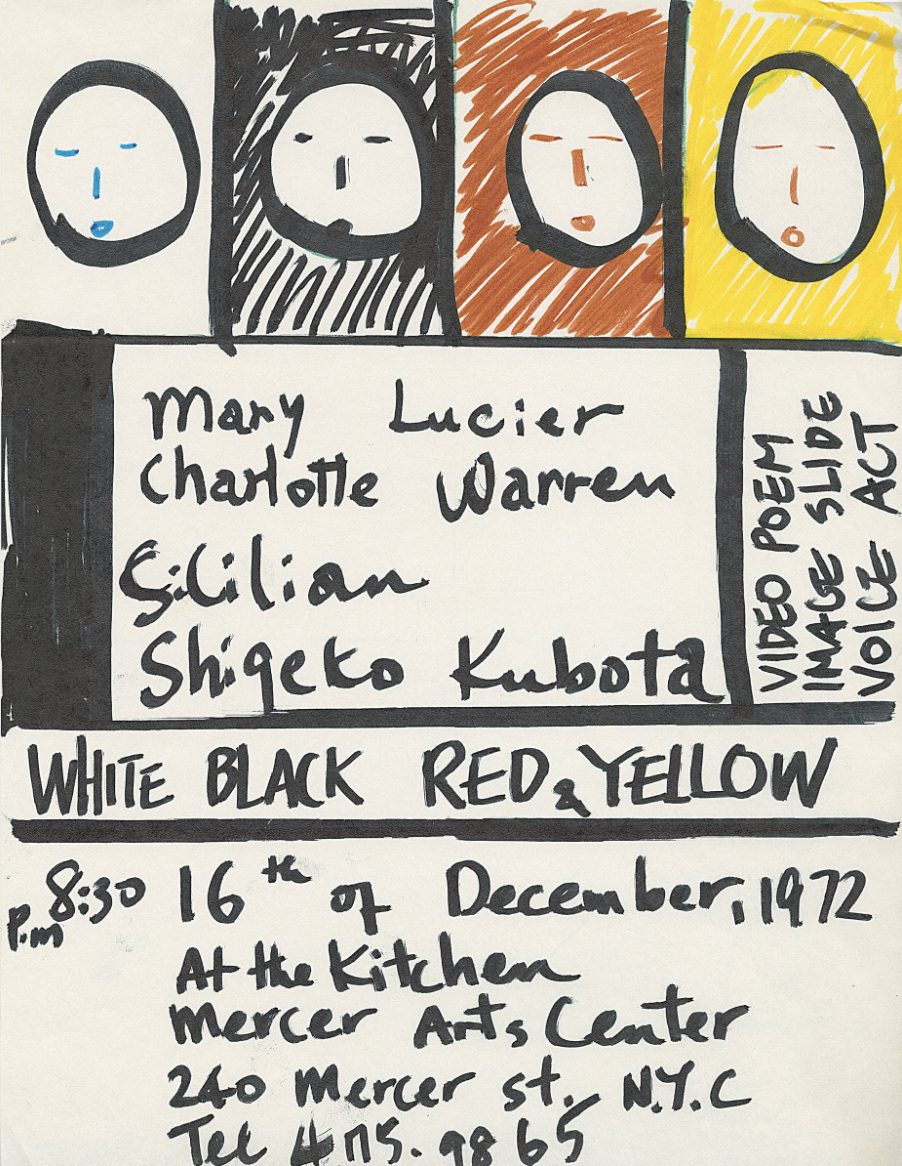 Mary Lucier
Charlotte Warren
Sicilian
Shigeko Kubota
VIDEO POEM
IMAGE SLIDE
VOICE ACT
WHITE BLACK RED & YELLOW
8:30 p.m 16th of December, 1972
At the Kitchen
Mercer Arts Center
240 Mercer st. N.Y.C
Tel 475.9865